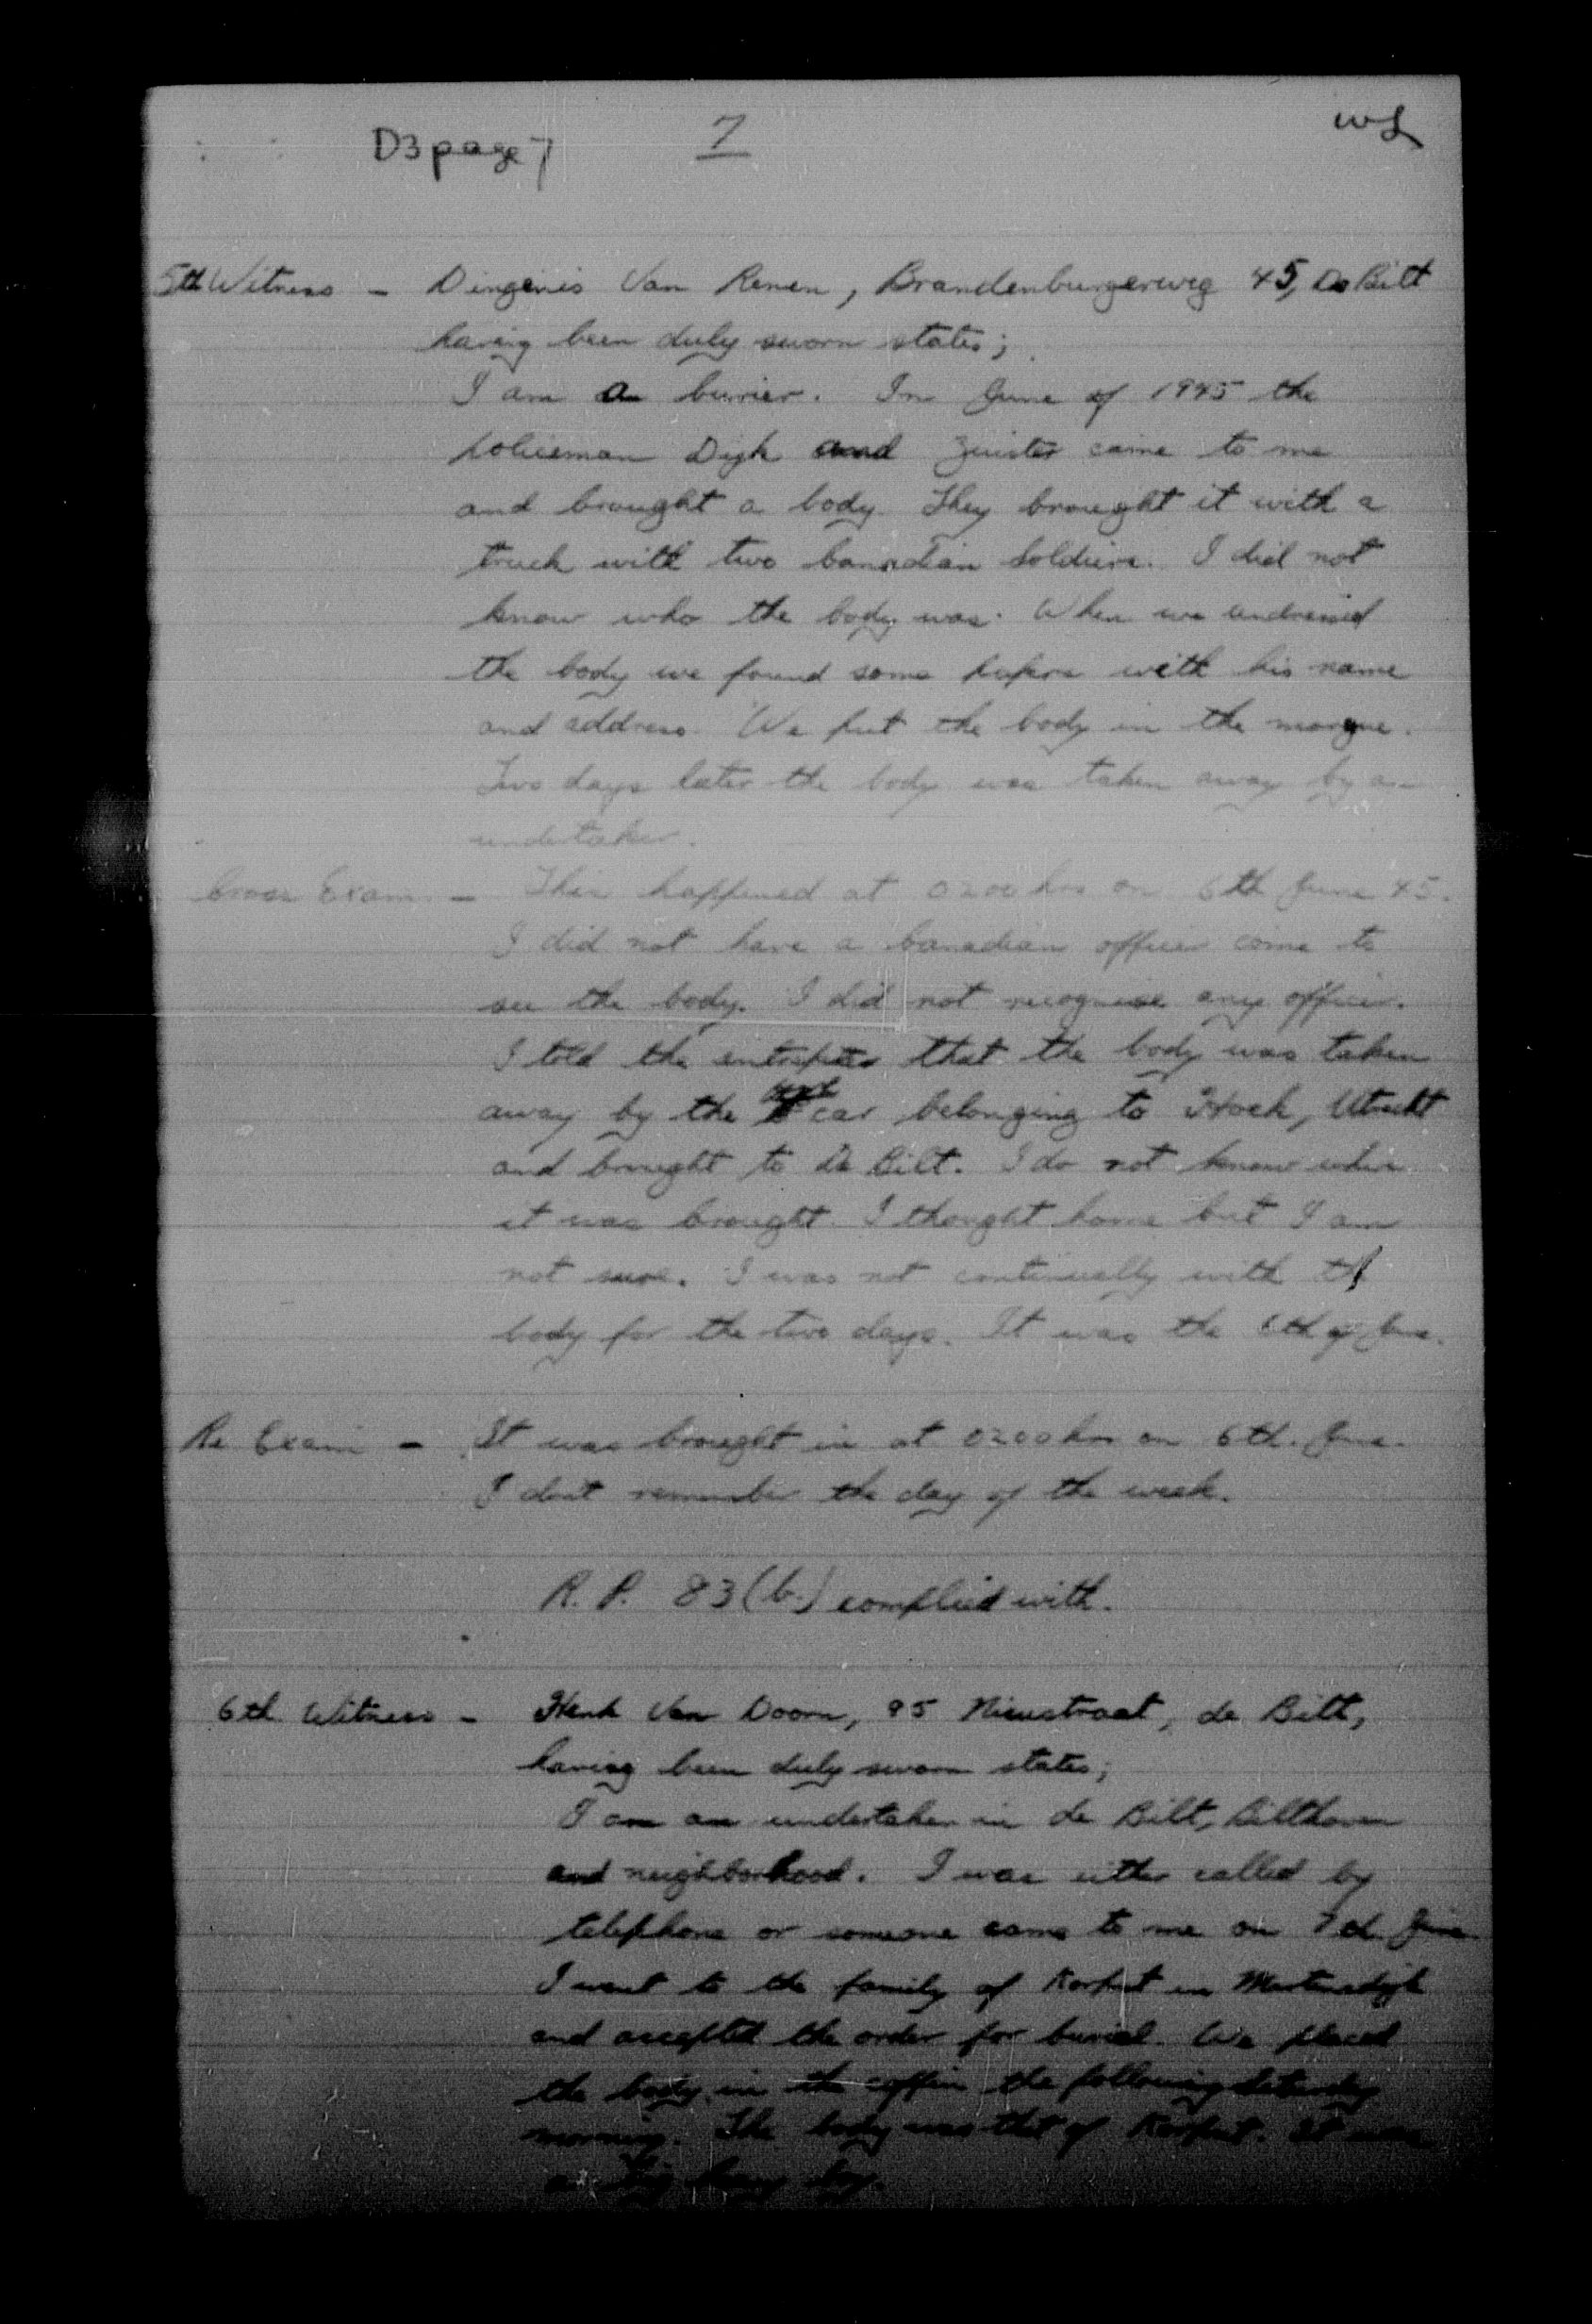 D3 page 7
7
WL
5th Witness - Dingenis Van Renen, Brandenburgerweg 45, De Bilt
having been duly sworn states;
I am a burier. In June of 1945 the
policeman Dijk and Zuister came to me
and brought a body. They brought it with a
truck with two Canadian Soldiers. I did not
know who the body was. When we undressed
the body we found some papers with his name
and address. We put the body in the morgue.
Two days later the body was taken away by an
undertaker.
Cross Exam. - This happened at 0200 hrs on 6th June 45.
I did not have a Canadian officer come to
see the body. I did not recognise any officer.
I told the that the body was taken
away by the car belonging to Hoek, Utrecht
and brought to De Bilt. I do not know where
it was brought. I thought home but I am
not sure. I was not continually with the
body for the two days. It was the 6th of June.
Re Exam - It was brought in at 0200 hrs on 6th. June.
I dont remember the day of the week.
R. P. 83 (b.) complied with.
6th Witness - Henk Van Doorn, 95 Nieustraat, de Bilt,
having been duly sworn states;
I am an undertaker in de Bilt, Bilthoven
and neighborhood. I was either called by
telephone or someone came to me on 7th June
I went to the family of in
and accepted the order for burial. We placed
the body in the coffin the following Saturday
morning. The body was that of It was
a big heavy boy.